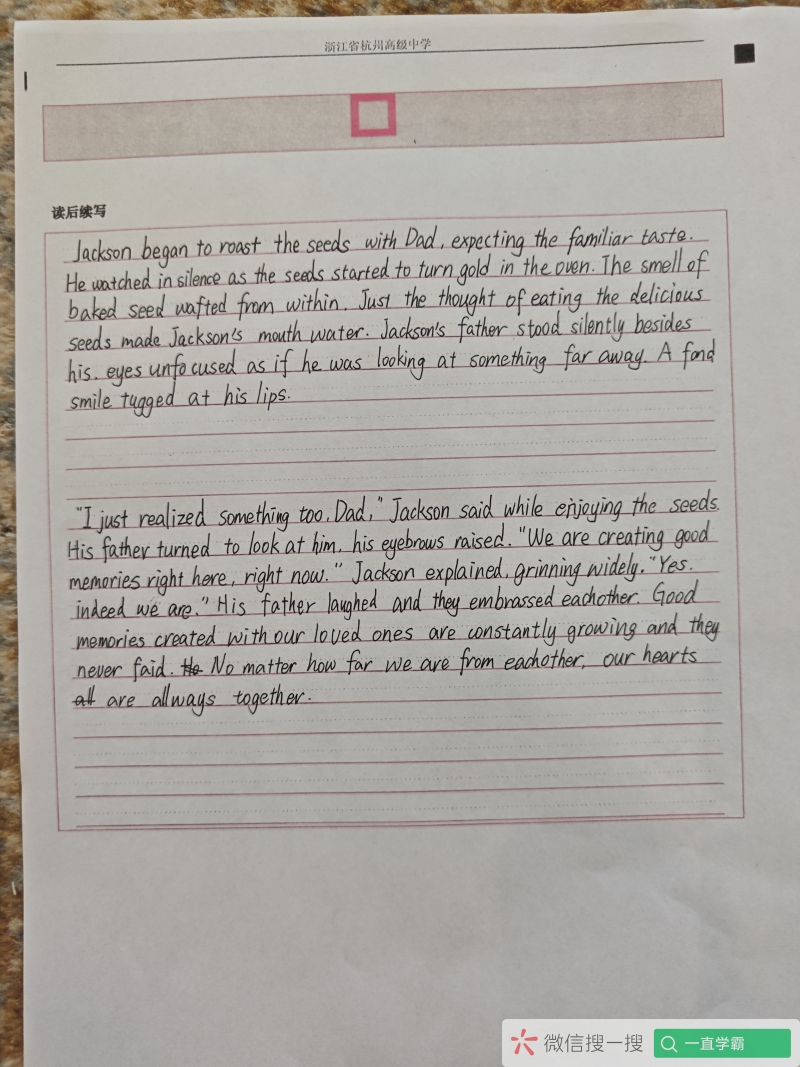 浙江省杭州高级中学
读后续写
Jackson began to roast the seeds with Dad, expecting the familiar taste.
He watched in silence as the seeds started to turn gold in the oven. The smell of
baked seed wafted from within. Just the thought of eating the delicious
seeds made Jackson's mouth water. Jackson's father stood silently besides
his. eyes unfocused as if he was looking at something far away. A fond
smile tugged at his lips.
"I just realized something too, Dad," Jackson said while enjoying the seeds.
His father turned to look at him, his eyebrows raised. "We are creating good
memories right here, right now." Jackson explained, grinning widely. "Yes.
indeed we are." His father laughed and they embrassed eachother. Good
memories created with our loved ones are constantly growing and they
never faid. He No matter how far we are from eachother, our hearts
all are allways together.
微信搜一搜 一直学霸